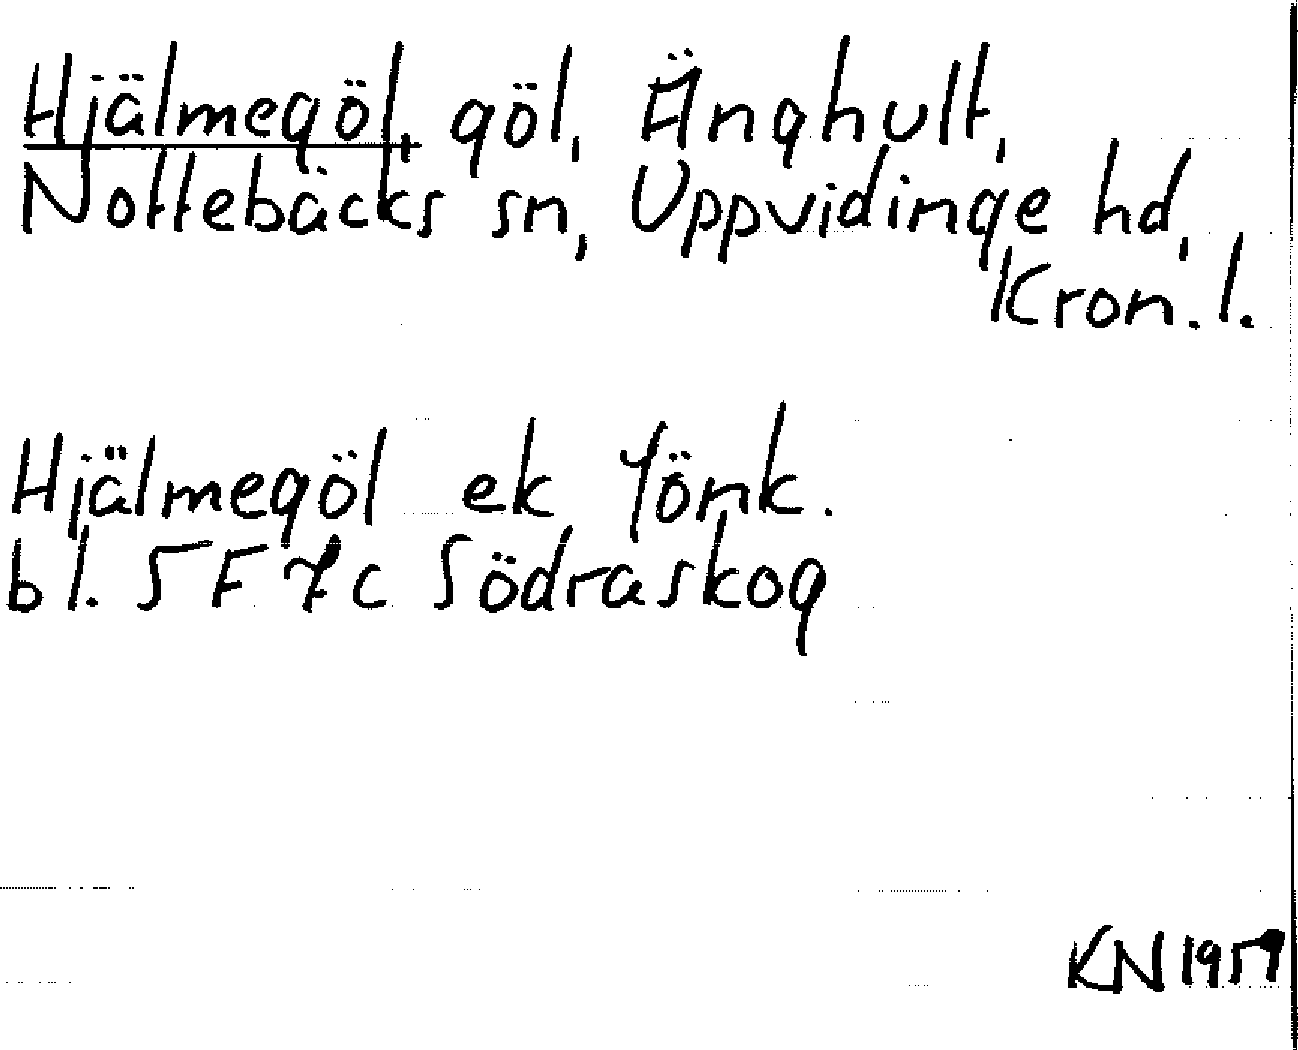 Hjälmegöl, göl, Änghult,
Nottebäcks sn, Uppvidinge hd,
Kron. l.
Hjälmegöl ek Jönk.
bl. 5F 7c Södraskog
KN 1959